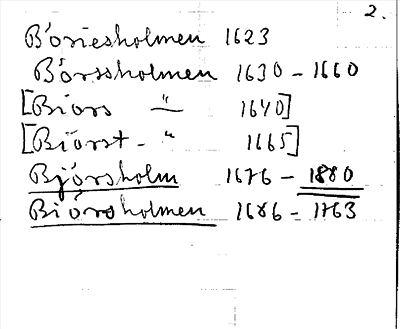 2.
Böriesholmen 1623
Börssholmen 1630 - 1660
[Biörs — " 1640]
[Biörst - " 1665]
Bjórsholm 1676 - 1880
Biörsholmen 1686 - 1763